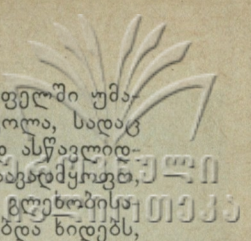 ფელში უმა-
ოლა, სადაც
ასწავლიდ-
ავადმყოფო,
გლეხობისა-
ბდა ხიდებს,